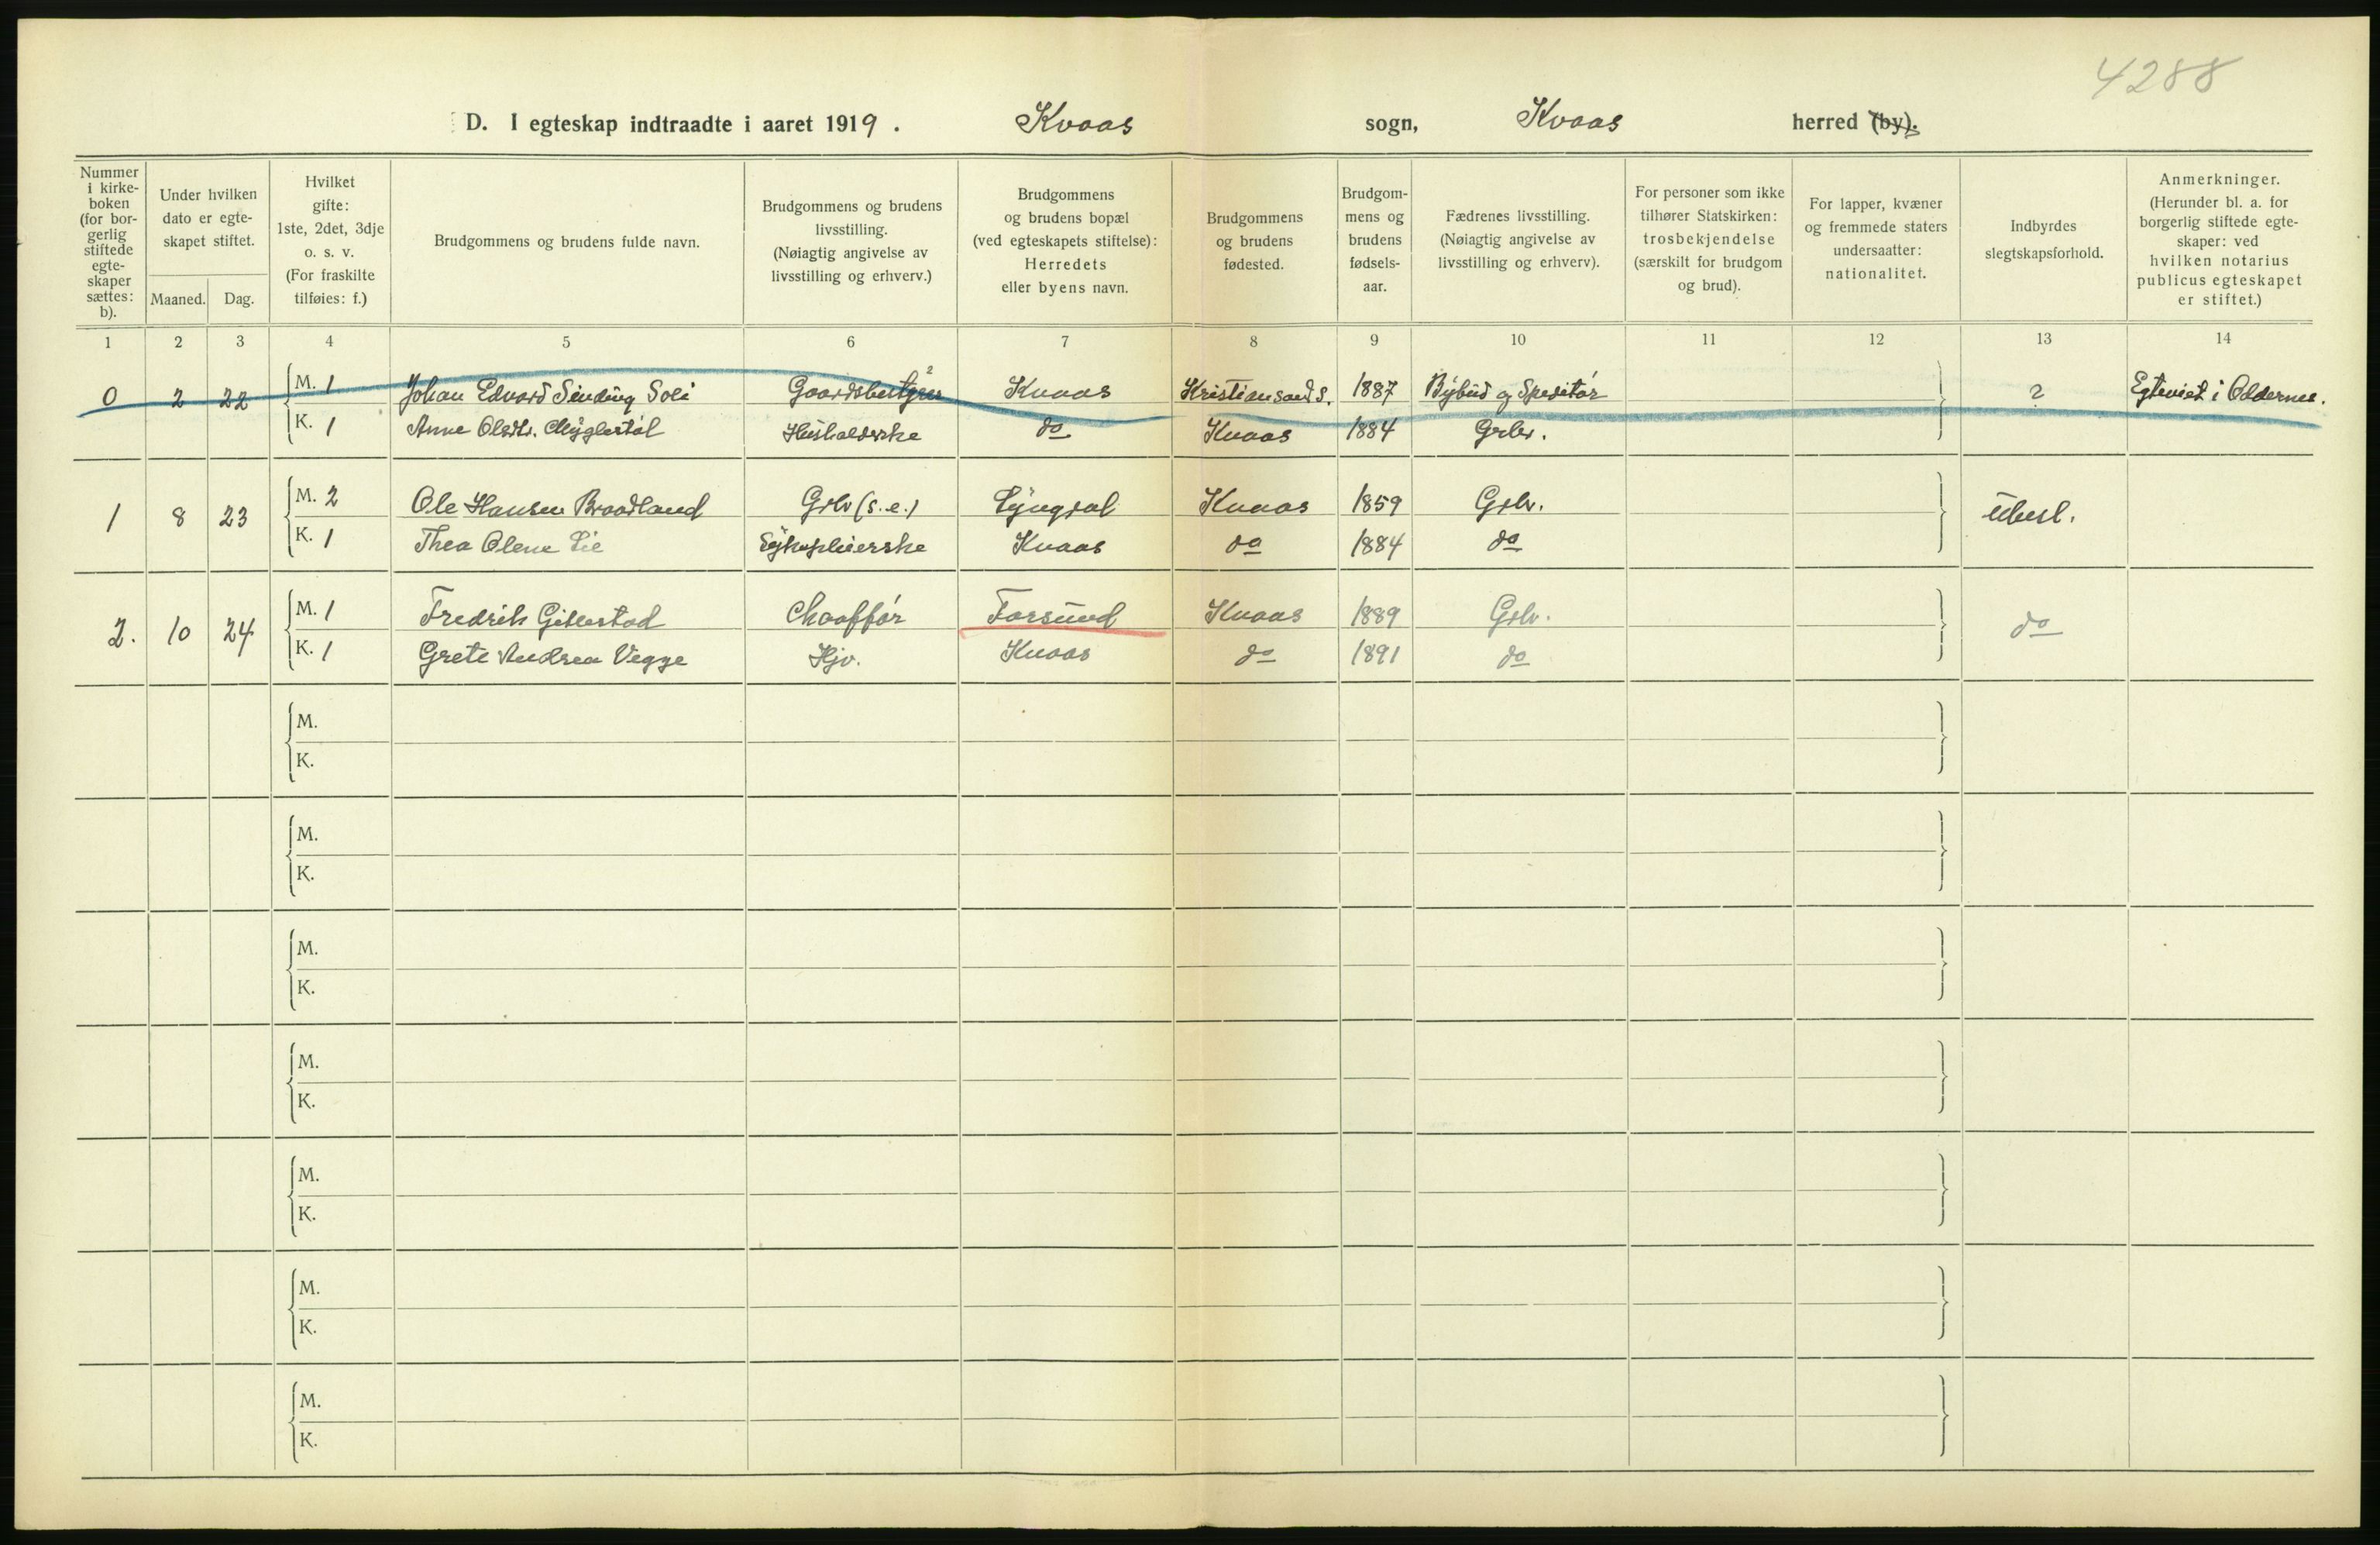 4288
D. I egteskap indtraadte i aaret 1919. Kvaas sogn, Kvaas herred (by).
Nummer i kirkeboken (for borgerlig stiftede egteskaper sættes: b).
Under hvilken dato er egteskapet stiftet.
Maaned. Dag.
Hvilket gifte: 1ste, 2det, 3dje o. s. v. (For fraskilte tilføies: f.)
Brudgommens og brudens fulde navn.
Brudgommens og brudens livsstilling. (Nøiagtig angivelse av livsstilling og erhverv.)
Brudgommens og brudens bopæl (ved egteskapets stiftelse): Herredets eller byens navn.
Brudgommens og brudens fødested.
Brudgommens og brudens fødselsaar.
Fædrenes livsstilling. (Nøiagtig angivelse av livsstilling og erhverv).
For personer som ikke tilhører Statskirken: trosbekjendelse (særskilt for brudgom og brud).
For lapper, kvæner og fremmede staters undersaatter: nationalitet.
Indbyrdes slegtskapsforhold.
Anmerkninger. (Herunder bl. a. for borgerlig stiftede egteskaper: ved hvilken notarius publicus egteskapet er stiftet.)
1 2 3 4 5 6 7 8 9 10 11 12 13 14
0 2 22 M. 1 Johan Edvard Sinding Soli Gaardsbestyrer Kvaas Kristiansand S. 1887 Bybud og Speditør ? Egteviet i Oddernes.
K. 1 Anne Olsdtr. Husholderske do Kvaas 1884 Grbr.
1 8 23 M. 2 Ole Hansen Braadland Grbr (s.e.) Lyngdal Kvaas 1859 Grbr. ubesl.
K. 1 Thea Olene Lie Sykepleierske Kvaas do 1884 do
2. 10 24 M. 1 Fredrik Gitlestad Chaaffør Farsund Kvaas 1889 Grbr. do
K. 1 Grete Andrea Vegge Hjv. Kvaas do 1891 do
M.
K.
M.
K.
M.
K.
M.
K.
M.
K.
M.
K.
M.
K.